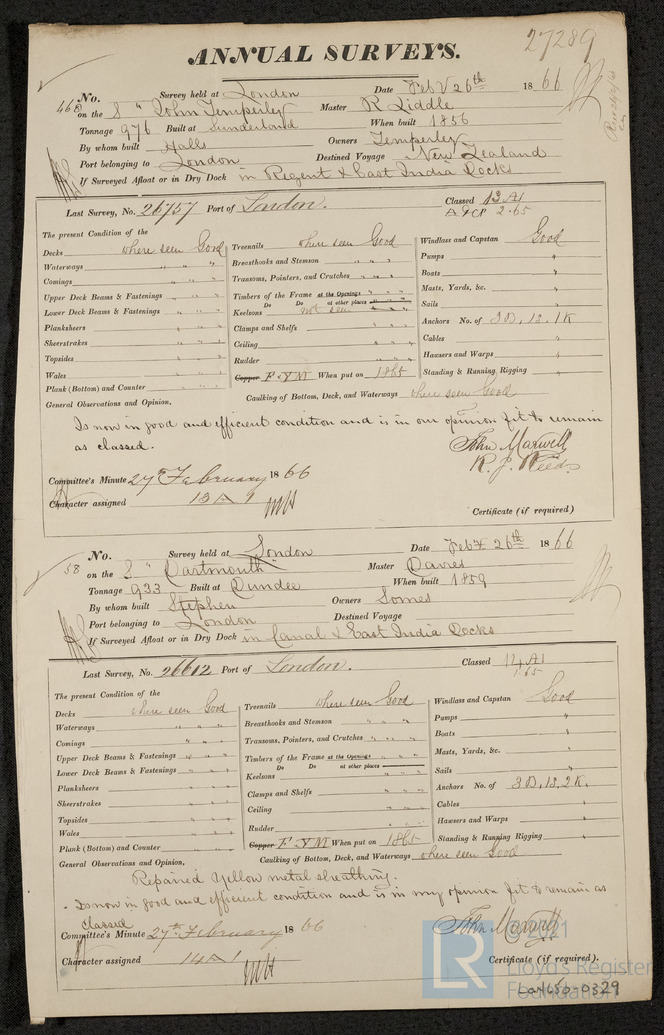 27289
ANNUAL SURVEYS.
468 No. Survey held at London Date Feby 26th 1866
on the S "John Temperley" Master R Liddle
Tonnage 976 Built at Sunderland When built 1856
By whom built Halls Owners Temperley
Port belonging to London Destined Voyage New Zealand
If Surveyed Afloat or in Dry Dock in Regent & East India Docks
Last Survey, No. 26757 Port of London. Classed 13 A1
A&CP 2.65
The present Condition of the
Decks where seen Good
Waterways " " "
Comings " " "
Upper Deck Beams & Fastenings " " "
Lower Deck Beams & Fastenings " " "
Planksheers " " "
Sheerstrakes " " "
Topsides " " "
Wales " " "
Plank (Bottom) and Counter " " "
Treenails where seen Good
Breasthooks and Stemson " " "
Transoms, Pointers, and Crutches " " "
Timbers of the Frame at the Openings " " "
Do Do at other places
Keelsons not seen
Clamps and Shelfs " " "
Ceiling " " "
Rudder " " "
Copper F & YM When put on 1865
Windlass and Capstan Good
Pumps "
Boats "
Masts, Yards, &c. "
Sails "
Anchors No. of 3B, 1S, 1K
Cables "
Hawsers and Warps "
Standing & Running Rigging "
Caulking of Bottom, Deck, and Waterways where seen Good
General Observations and Opinion,
Is now in good and efficient condition and is in our opinion fit to remain
as classed.
John Maxwell
R. J. Reeds
Committee's Minute 27 February 1866
Character assigned 13 A 1
Certificate (if required)
58 No. Survey held at London Date Feby 26th 1866
on the S "Dartmouth" Master Davies
Tonnage 933 Built at Dundee When built 1859
By whom built Stephen Owners Somes
Port belonging to London Destined Voyage
If Surveyed Afloat or in Dry Dock in Canal & East India Docks
Last Survey, No. 26612 Port of London. Classed 14 A1
1.65
The present Condition of the
Decks where seen Good
Waterways " " "
Comings " " "
Upper Deck Beams & Fastenings " " "
Lower Deck Beams & Fastenings " " "
Planksheers " " "
Sheerstrakes " " "
Topsides " " "
Wales " " "
Plank (Bottom) and Counter " " "
Treenails where seen Good
Breasthooks and Stemson " " "
Transoms, Pointers, and Crutches " " "
Timbers of the Frame at the Openings " " "
Do Do at other places
Keelsons " " "
Clamps and Shelfs " " "
Ceiling " " "
Rudder " "
Copper F & YM When put on 1865
Windlass and Capstan Good
Pumps "
Boats "
Masts, Yards, &c. "
Sails "
Anchors No. of 3B, 1S, 2K.
Cables "
Hawsers and Warps "
Standing & Running Rigging "
Caulking of Bottom, Deck, and Waterways where seen Good
General Observations and Opinion,
Repaired Yellow metal sheathing.
Is now in good and efficient condition and is in my opinion fit to remain as
classed
John Maxwell
Committee's Minute 27th February 1866
Character assigned 14 A 1
Certificate (if required).
LR
Lloyd's Register
Foundation